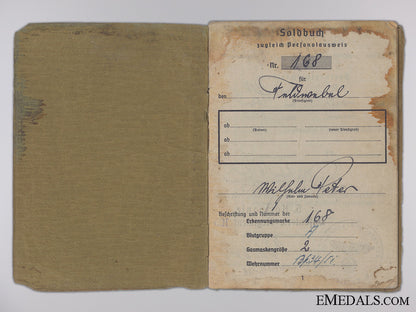 Soldbuch
zugleich Personalausweis
Nr. 168
für
den Feldwebel
(Dienstgrad)
ab
(Datum) (neuer Dienstgrad)
ab
ab
Wilhelm Peter
(Vor- und Zuname)
Beschriftung und Nummer der
Erkennungsmarke 168
Blutgruppe A
Gasmaskengröße 2
Wehrnummer
EMEDALS.COM